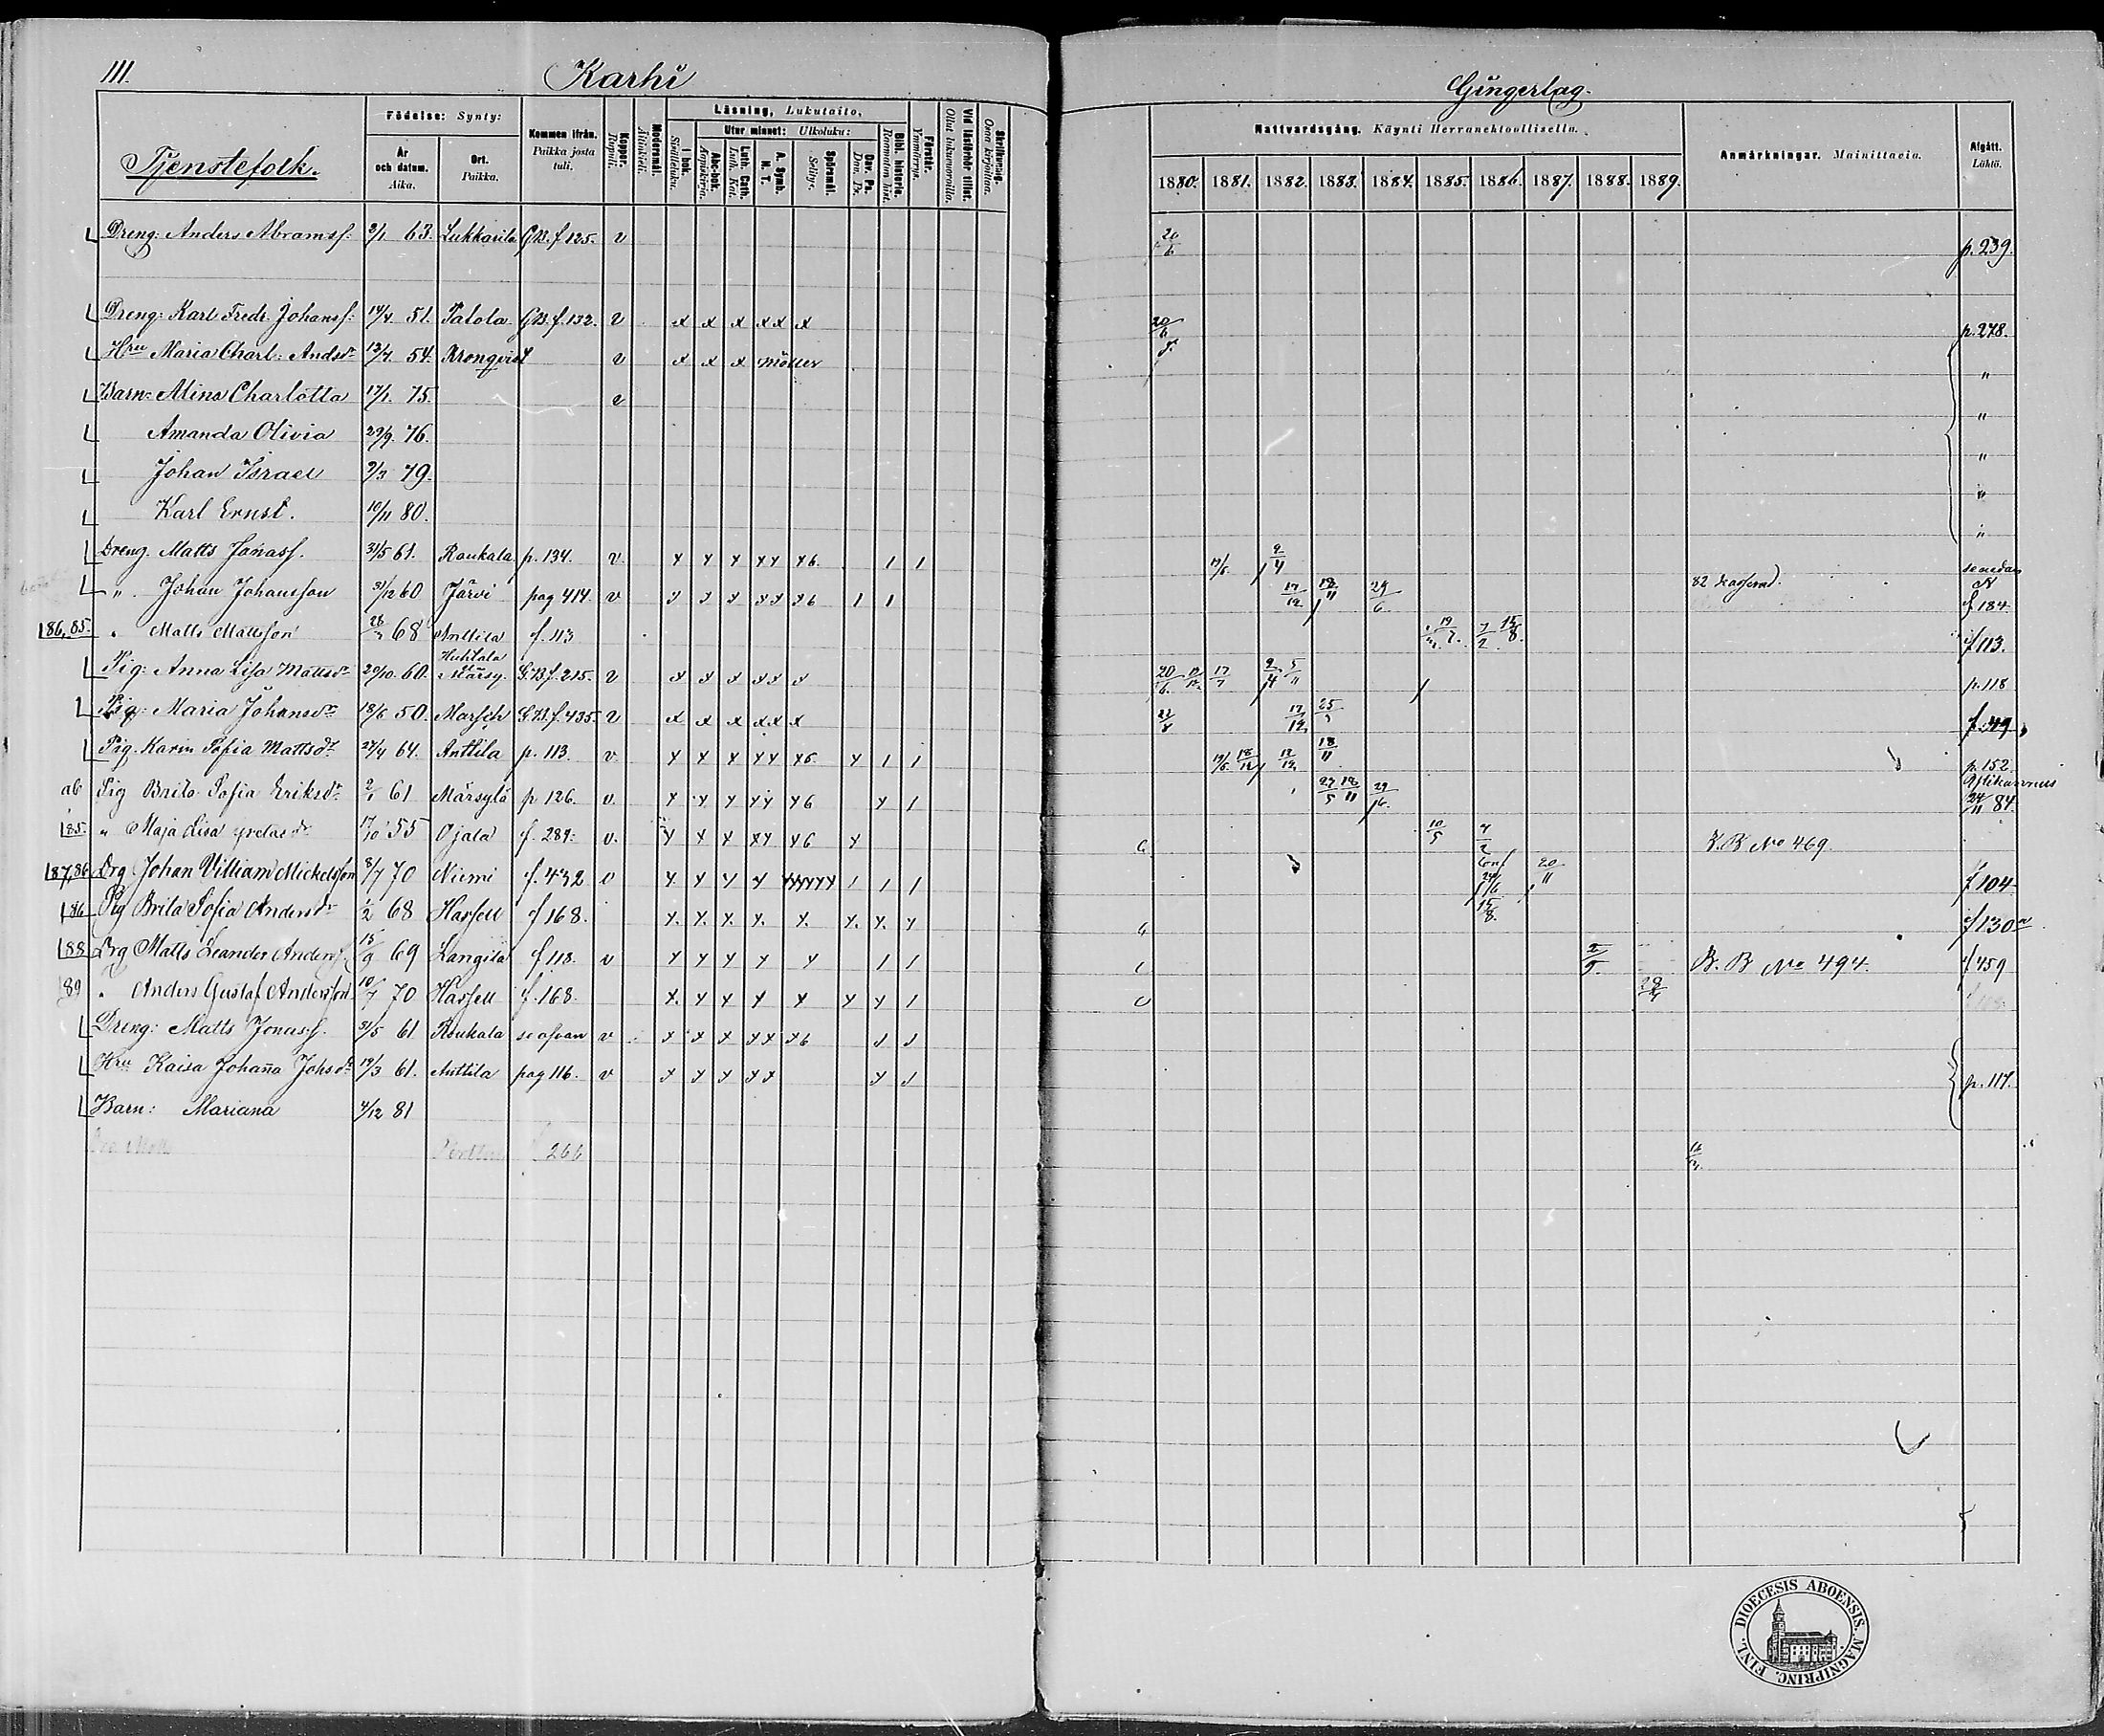 111. Karhi Gingerlag.
Tjenstefolk.
Födelse: Synty:
År och datum. Aika.
Ort. Paikka.
Kommen ifrån. Paikka josta tuli.
Koppor. Rupuli.
Modersmål. Äitinkieli.
Läsning, Lukutaito.
I bok. Sisältluku.
Utur minnet: Ulkoluku:
Abc-bok. Aapiskirja.
Luth. Cath. Luth. Kat.
A. Symb. N. T.
Spörsmål. Selitys.
Dav. Ps. Dav. Ps.
Bibl. historia. Raamatun hist.
Förstår. Ymmärrys.
Vid läsförhör tillst. Ollut lukuvuoroilla.
Skrifkunnig. Osaa kirjoittaa.
Nattvardsgång. Käynti Herranehtoollisella.
1880. 1881. 1882. 1883. 1884. 1885. 1886. 1887. 1888. 1889.
Anmärkningar. Mainittavia.
Afgått. Lähtö.
Dreng: Anders Abramss: 2/1 63. Lukkarila G.B. f. 125. v 20/6 p. 239.
Dreng: Karl Fredr. Johanss: 14/4 51. Palola G.B. f. 132. v x x x xx x 20/6 p. 278.
Hru Maria Charl: Andsdr 12/7 54. Kronqvist v x x x möller "
Barn: Mina Charlotta 17/1. 75. v "
Amanda Olivia 29/9. 76. "
Johan Israel 9/3 79. "
Karl Ernst. 10/11 80. "
Dreng. Matts Jonass. 31/5 61. Roukala p. 134. v y y y yy y6. 1 1 19/6 9/4 senedan
". Johan Johansson 31/12 60 Järvi pag 414. v y y y yy y6 1 1 17/12 18/11 29/6 f 184.
86,85. " Matts Mattsson 28/3 68 Anttila f. 113 19/7. 7/2 15/8. f 113.
Pig: Anna Lisa Mattsdr 29/10. 60. Huhtala Märsy. G.B. f. 215. v x x x xx x 20/6. 17/7 9/4 5/11 p. 118
Pig: Maria Johansdr 18/6 50. Marsch G.B. f. 435. v x x x x x x 17/12 25/ f. 49
Pig. Karin Sofia Mattsdr 27/4 64. Anttila p. 113. v y y y yy y6 y 1 1 19/6 18/12 12/12 18/11 p. 152
ab Pig Brita Sofia Eriksdr 2/1 61 Märsylä p 126. v. y y y yy y6 y 1 27/5 18/11 29/6. 24/11 84.
85. " Maja Lisa Gretasdr 17/10 55 Ojala f. 289: v. y y y yy y6 y 10/5 7/2 K. B No 469.
87,86 Drg Johan Villiam Mickelsson 8/7 70 Niemi f. 432 v y y y y yyyyyy 1 1 1 Conf 20/11 f 104
86 Pig Brita Sofia Andersdr 1/2 68 Hassell f 168. y. y. y. y. y. y. y. y 15/8. f 130
88 Drg Matts Leander Anderss. 15/9 69 Langila f 118. v y y y y y 1 1 B. B No 494. f 459
89 " Anders Gustaf Andersson 10/7 70 Hassell f. 168. y. y y y y y y 1
Dreng: Matts Jonass. 31/5 61 Roukala se ofvan v y y y yy y6 1 1
Hru Kaisa Johanna Johsdr 19/3 61. Anttila pag 116. v y y y yy y 1 p. 117.
Barn: Mariana 4/12 81
266
DIOECESIS ABOENSIS. MAGNIPRINC. FINL.